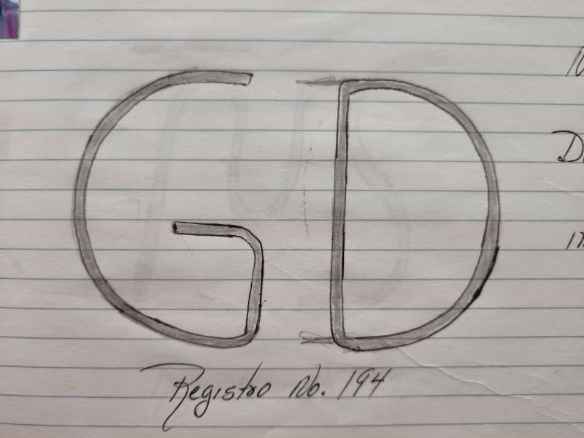 GD
Registro No. 194